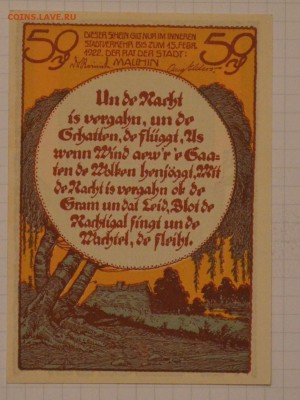 COINS.LAVE.RU
50 DIESER SCHEIN GILT NUR IM INNEREN 50
STADTVERKEHR BIS ZUM 15. FEBR.
1922. DER RAT DER STADT:
MALCHIN
Un de Nacht
is vergahn, un de
Schatten, de flüggt, As
wenn Wind aew'r 'e Saa-
ten de Wolken henjöggt, Mit
de Nacht is vergahn ok de
Gram un dat Leid, Blot de
Nachtigal singt un de
Wachtel, de fleiht.